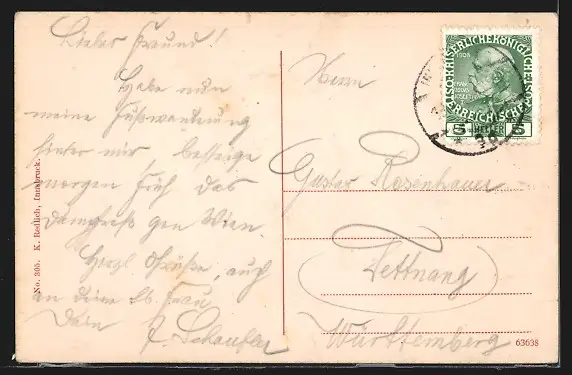 Lieber Freund!
Habe nun
meine Fußwanderung
hinter mir, besteige
morgen früh das
gen Wien.
Herzl. Grüße, auch
an deine lb. Frau
Dein
Herrn
Gustav Rosenhauer
Tettnang
Württemberg
No. 305. K. Redlich, Innsbruck.
63638
KAISERLICHEKÖNIGLICHE
ÖSTERREICHISCHE
1908
5 HELLER 5